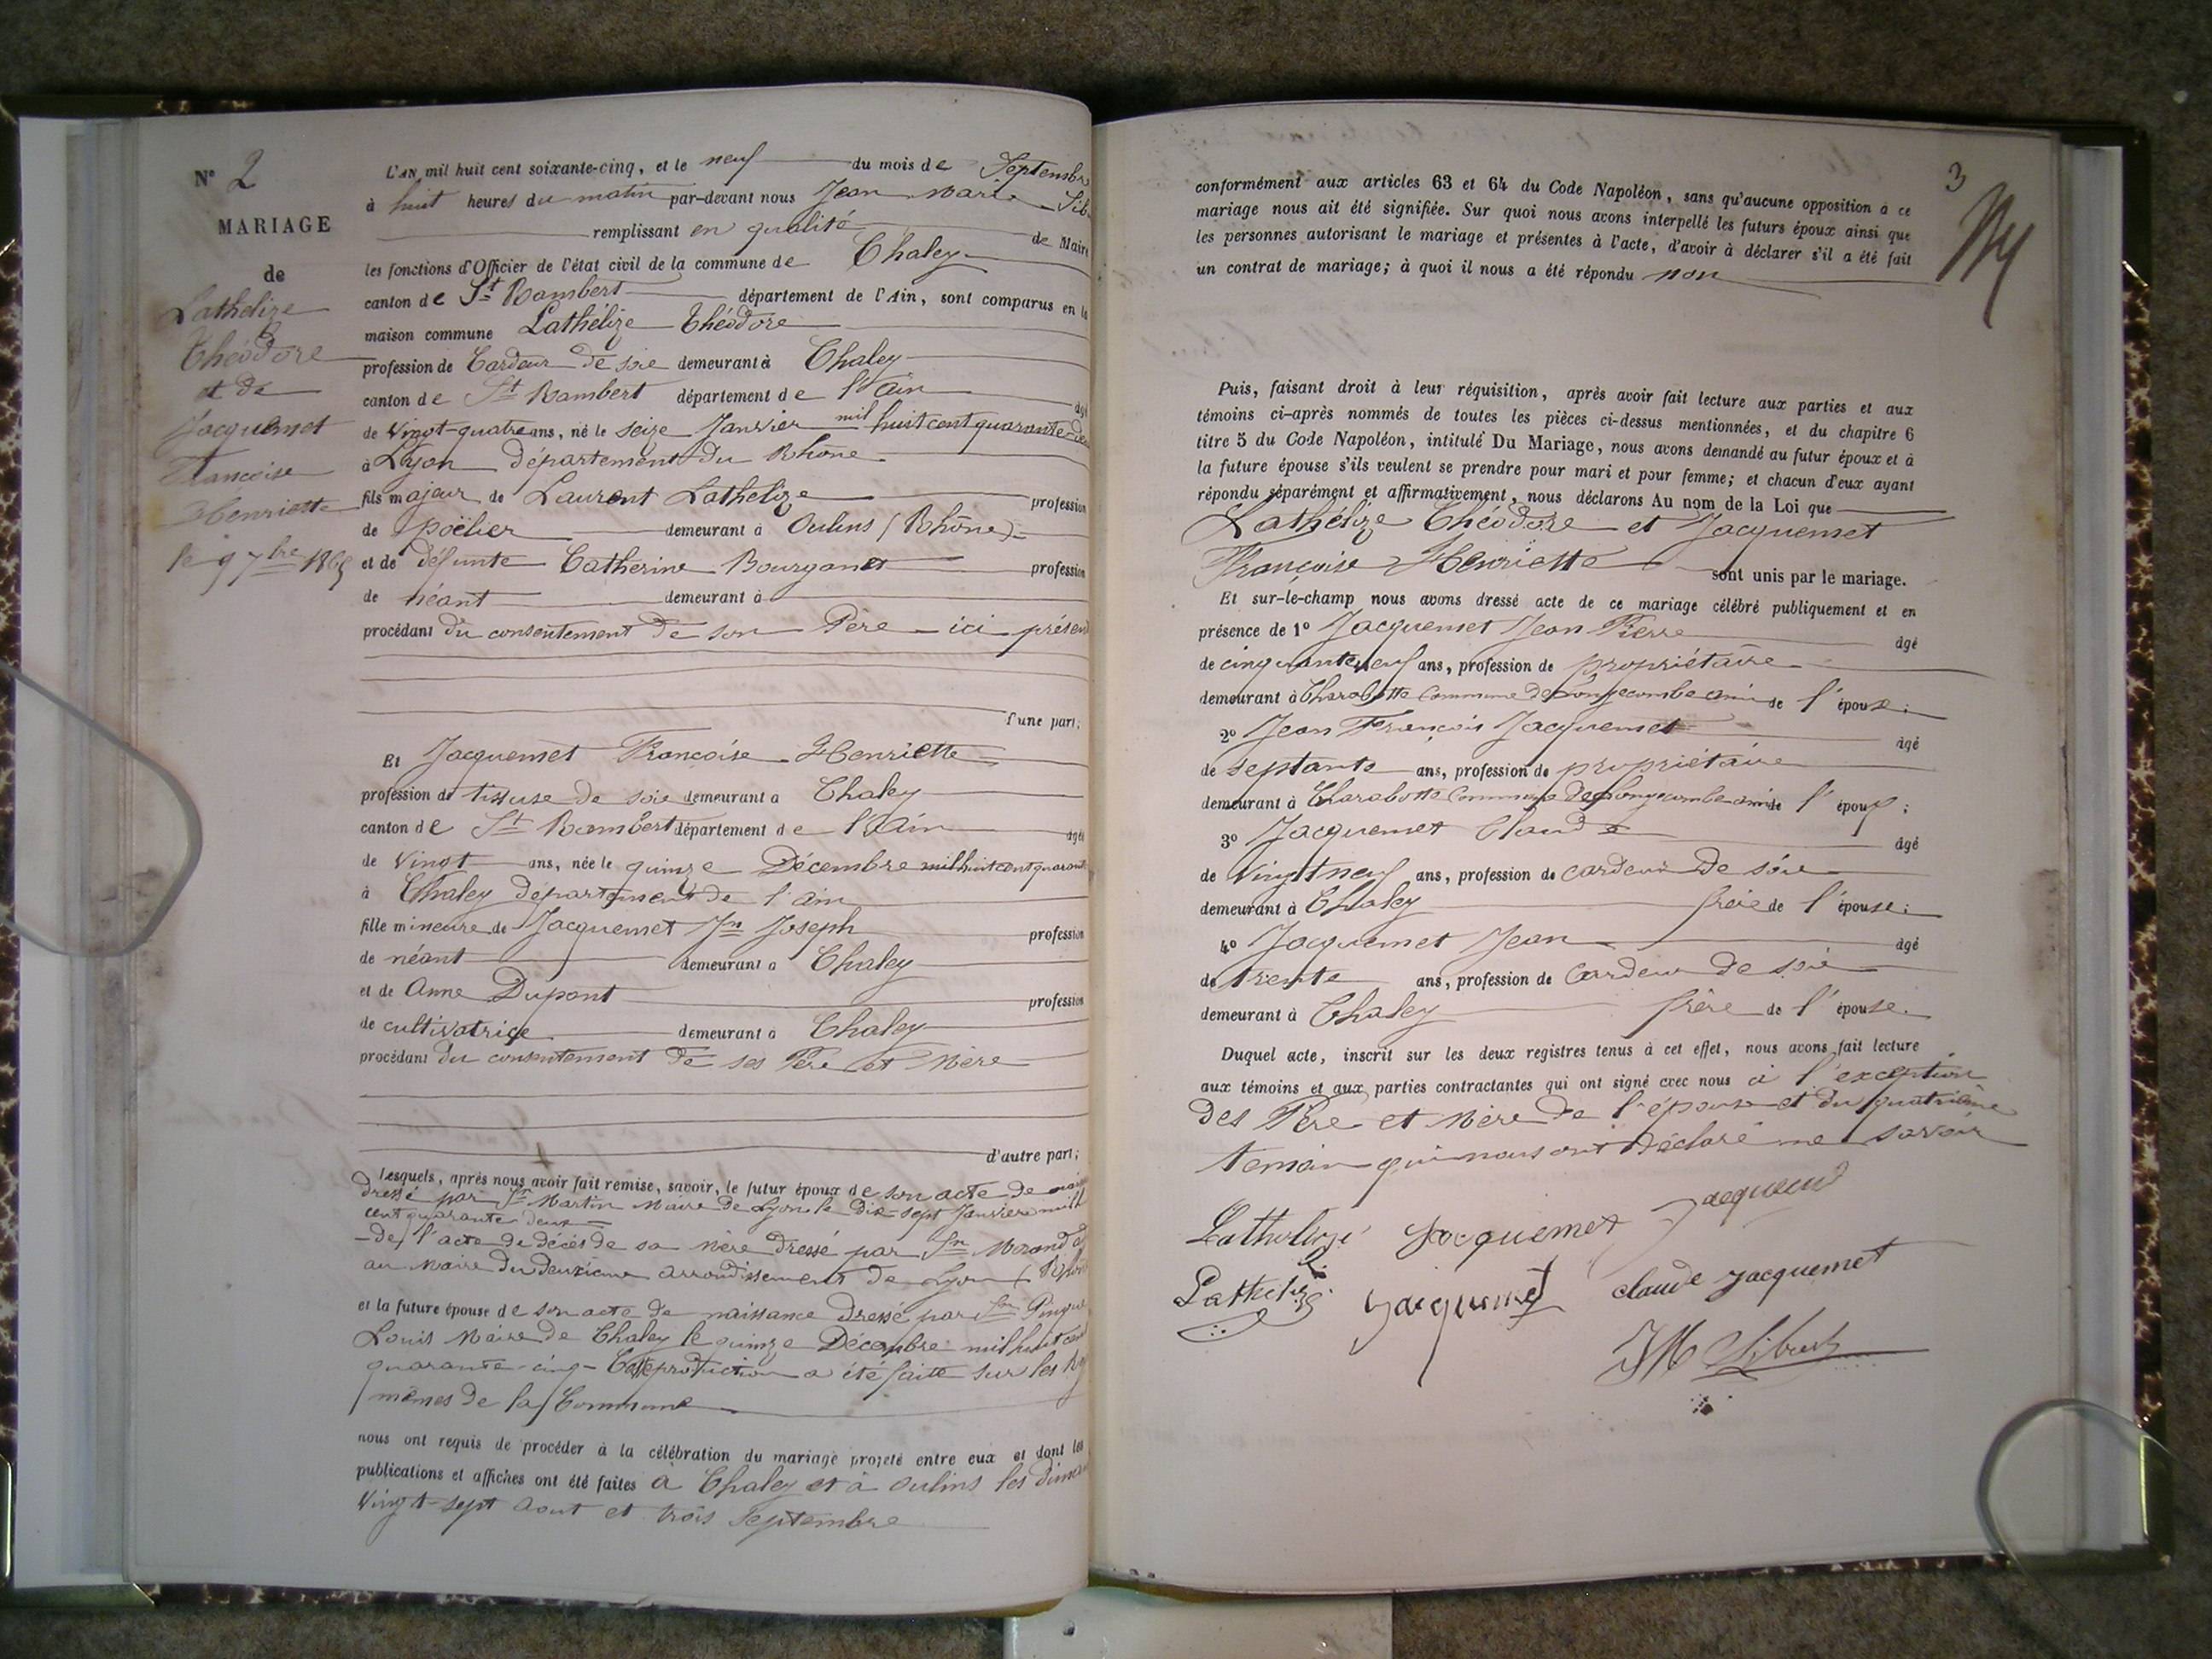 N° 2
MARIAGE
de
Lathélize
Théodore
et de
Jacquemet
Francoise
Henriette
le 9 7bre 1865
L'AN mil huit cent soixante-cinq, et le neuf du mois de Septembre
à huit heures du matin par-devant nous Jean Marie
remplissant en qualité de Maire
les fonctions d'Officier de l'état civil de la commune de Chaley
canton de St Rambert département de l'Ain, sont comparus en la
maison commune Lathélize Théodore
profession de Cardeur de soie demeurant à Chaley
canton de St Rambert département de l'Ain âgé
de Vingt-quatre ans, né le seize Janvier mil huit cent quarante-
à Lyon département du Rhone
fils majeur de Laurent Lathelize profession
de poëlier demeurant à Oulins (Rhône)
et de défunte Catherine profession
de néant demeurant à
procédant du consentement de son Père ici présent
l'une part;
Et Jacquemet Francoise Henriette
profession de tisseuse de soie demeurant à Chaley
canton de St Rambert département de l'Ain âgée
de Vingt ans, née le quinze Décembre mil huit cent quarante
à Chaley département de l'ain
fille mineure de Jacquemet Jn Joseph profession
de néant demeurant à Chaley
et de Anne Dupont profession
de cultivatrice demeurant à Chaley
procédant du consentement de ses Père et Mère
d'autre part;
Lesquels, après nous avoir fait remise, savoir, le futur époux de son acte de
dressé par Sr Martin Maire de Lyon le dix-sept Janvier mil
cent quarante deux
-de l'acte de décès de sa mère dressé par Sr Morand
au Maire du deuxième arrondissement de Lyon
et la future épouse de son acte de naissance dressé par Sr
Louis Maire de Chaley le quinze Décembre mil huit cent
quarante-cinq- a été faite sur les
mêmes de la Commune
nous ont requis de procéder à la célébration du mariage projeté entre eux et dont les
publications et affiches ont été faites à Chaley et à Oulins les
Vingt-sept Aout et trois Septembre
3
conformément aux articles 63 et 64 du Code Napoléon, sans qu'aucune opposition à ce
mariage nous ait été signifiée. Sur quoi nous avons interpellé les futurs époux ainsi que
les personnes autorisant le mariage et présentes à l'acte, d'avoir à déclarer s'il a été fait
un contrat de mariage; à quoi il nous a été répondu non
Puis, faisant droit à leur réquisition, après avoir fait lecture aux parties et aux
témoins ci-après nommés de toutes les pièces ci-dessus mentionnées, et du chapitre 6
titre 5 du Code Napoléon, intitulé Du Mariage, nous avons demandé au futur époux et à
la future épouse s'ils veulent se prendre pour mari et pour femme; et chacun d'eux ayant
répondu séparément et affirmativement, nous déclarons Au nom de la Loi que
Lathélize Théodore et Jacquemet
Françoise Henriette sont unis par le mariage.
Et sur-le-champ nous avons dressé acte de ce mariage célébré publiquement et en
présence de 1° Jacquemet Jean Pierre âgé
de cinquante neuf ans, profession de propriétaire
demeurant à Charabotte Commune de Longecombe ami de l'épouse;
2° Jean François Jacquemet âgé
de septante ans, profession de propriétaire
demeurant à Charabotte Commune de Longecombe ami de l'époux;
3° Jacquemet Claude âgé
de Vingt neuf ans, profession de cardeur de sóie
demeurant à Chaley frère de l'épouse;
4° Jacquemet Jean âgé
de trente ans, profession de Cardeur de soie
demeurant à Chaley frère de l'épouse.
Duquel acte, inscrit sur les deux registres tenus à cet effet, nous avons fait lecture
aux témoins et aux parties contractantes qui ont signé avec nous à l'exception
des Père et Mère de l'épouse et du quatrième
temoin qui nous ont déclaré ne savoir
Jacquemet
Lathelize
Jacquemet
claude Jacquemet